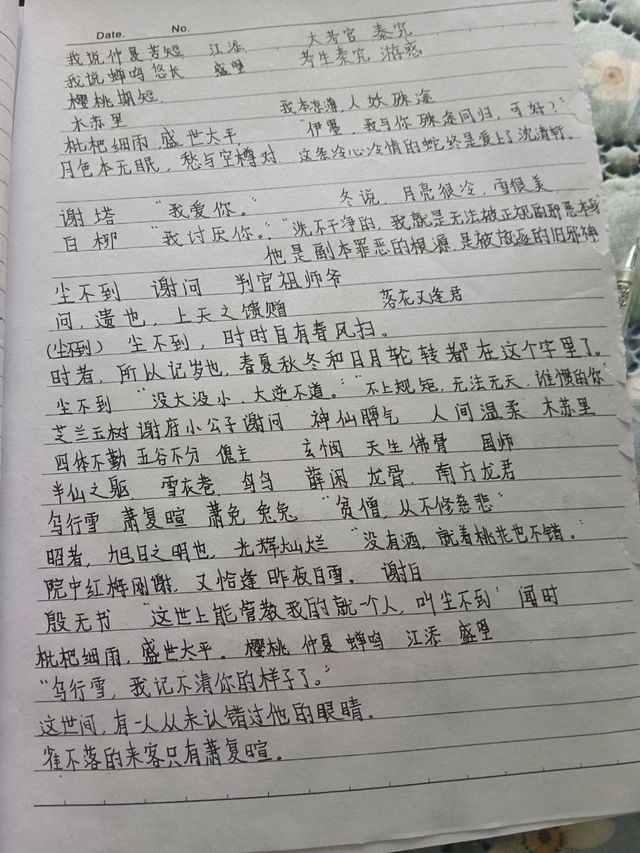 Date. No.
我说仲夏苦短 江添 大考官 秦究
我说蝉鸣悠长 盛望 考生秦究 游惑
樱桃期短
木苏里 我本凉薄,人妖殊途
枇杷细雨 盛世太平 “伊墨,我与你殊途同归,可好?”
月色本无眠,愁与空樽对 这条冷心冷情的蛇终是爱上了沈清轩。
谢塔 “我爱你。” 冬说,月亮很冷,雨很美
白柳 “我讨厌你。” “洗不干净的,我就是无法被正视的邪恶本身
他是副本罪恶的根源,是被放逐的旧邪神
尘不到 谢问 判官祖师爷
问,遗也,上天之馈赠 落花又逢君
(尘不到) 尘不到,时时自有春风扫。
时者,所以记岁也,春夏秋冬和日月轮转都在这个字里了。
尘不到 “没大没小,大逆不道。” “不上规矩,无法无天,谁惯的你
芝兰玉树 谢府小公子谢问 神仙脾气 人间温柔 木苏里
四体不勤 五谷不分 傀主 玄悯 天生佛骨 国师
半仙之躯 雪衣卷 鸟鸟 薛闲 龙骨 南方龙君
乌行雪 萧复暄 萧免 兔兔 “贫僧,从不修慈悲”
昭者,旭日之明也,光辉灿烂 “没有酒,就着桃花也不错。”
院中红梅刚谢,又恰逢昨夜白雪。 谢白
殷无书 “这世上能管教我的就一个人,叫尘不到” 闻时
枇杷细雨,盛世太平。樱桃 仲夏 蝉鸣 江添 盛望
“乌行雪,我记不清你的样子了。”
这世间,有一人从未认错过他的眼睛。
雀不落的来客只有萧复暄。